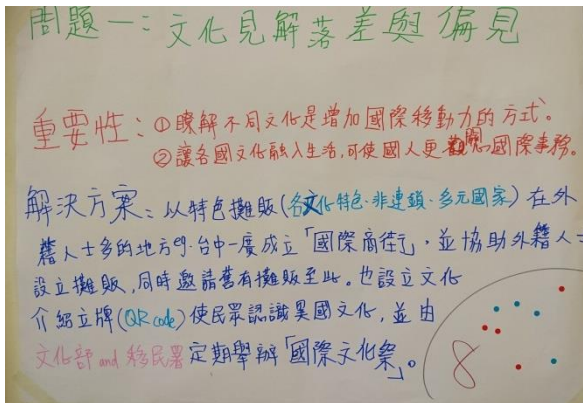 問題一：文化見解落差與偏見
重要性：①瞭解不同文化是增加國際移動力的方式。
②讓各國文化融入生活，可使國人更關心國際事務。
解決方案：以特色攤販(各文化特色·非連鎖·多元國家)在外
籍人士多的地方eg.台中一廣成立「國際商街」，並協助外籍人士
設立攤販，同時邀請舊有攤販至此。也設立文化
介紹立牌(QR code)使民眾認識異國文化，並由
文化部 and 移民署定期舉辦「國際文化祭」。
8